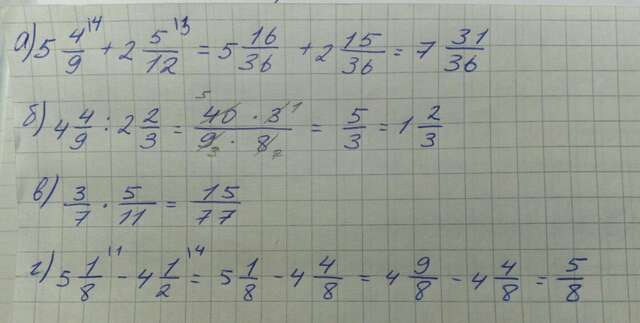 а) 5 4/9 \4 + 2 5/12 \3 = 5 16/36 + 2 15/36 = 7 31/36
б) 4 4/9 : 2 2/3 = 40 5 · 3 1 / 9 3 · 8 1 = 5/3 = 1 2/3
в) 3/7 · 5/11 = 15/77
г) 5 1/8 \1 - 4 1/2 \4 = 5 1/8 - 4 4/8 = 4 9/8 - 4 4/8 = 5/8